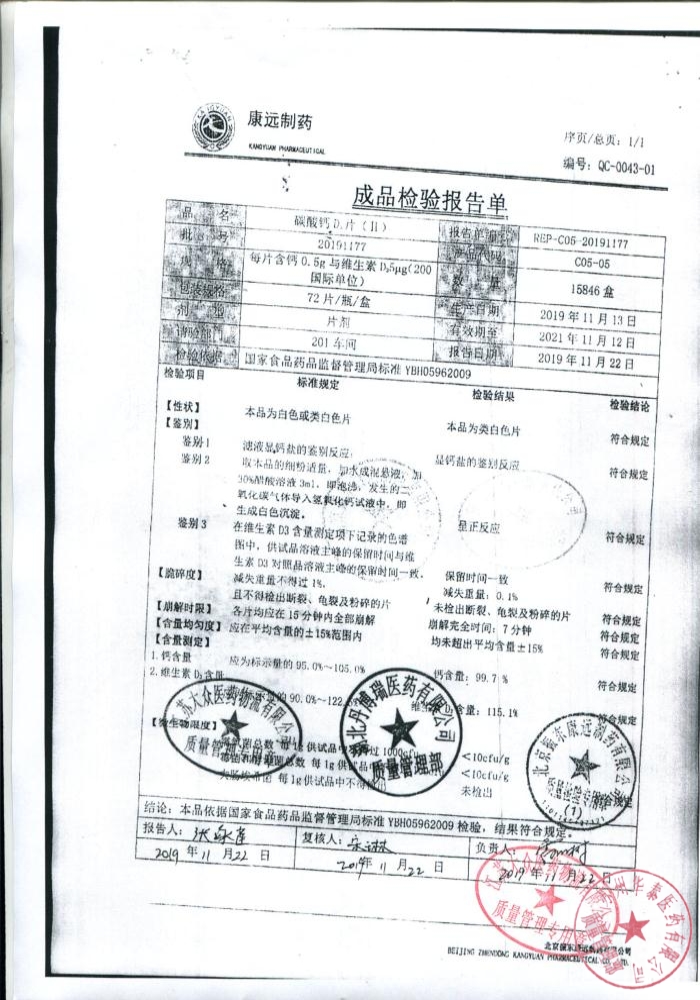 康远制药
KANGYUAN PHARMACEUTICAL
序页/总页：1/1
编号：QC-0043-01
成品检验报告单
品 名 碳酸钙D₃片（II） 报告单编 REP-C05-20191177
批 号 20191177 产品代码 C05-05
规 格 每片含钙0.5g与维生素D₃5μg(200国际单位) 数 量 15846盒
包装规格 72片/瓶/盒 生产日期 2019年11月13日
剂 型 片剂 有效期至 2021年11月12日
请验部门 201车间 报告日期 2019年11月22日
检验依据 国家食品药品监督管理局标准YBH05962009
检验项目 标准规定 检验结果 检验结论
【性状】 本品为白色或类白色片 本品为类白色片 符合规定
【鉴别】
鉴别1 滤液显钙盐的鉴别反应 显钙盐的鉴别反应 符合规定
鉴别2 取本品的细粉适量，加水成混悬液，加
30%醋酸溶液3ml，即泡沸，发生的二
氧化碳气体导入氢氧化钙试液中，即
生成白色沉淀。 呈正反应 符合规定
鉴别3 在维生素D3含量测定项下记录的色谱
图中，供试品溶液主峰的保留时间与维
生素D3对照品溶液主峰的保留时间一致。 保留时间一致 符合规定
【脆碎度】 减失重量不得过1%， 减失重量：0.1%
且不得检出断裂、龟裂及粉碎的片 未检出断裂、龟裂及粉碎的片 符合规定
【崩解时限】 各片均应在15分钟内全部崩解 崩解完全时间：7分钟 符合规定
【含量均匀度】 应在平均含量的±15%范围内 均未超出平均含量±15% 符合规定
【含量测定】
1.钙含量 应为标示量的95.0%~105.0% 钙含量：99.7% 符合规定
2.维生素D₃含量 的90.0%~122. 含量：115.1% 符合规定
【微生物限度】
总数 每1g供试品中 过1000cfu <10cfu/g
总数 每1g供试品中 <10cfu/g
大肠埃希菌 每1g供试品中不得检出 未检出 符合规定
结论：本品依据国家食品药品监督管理局标准YBH05962009检验，结果符合规定。
报告人： 复核人： 负责人：
2019年11月22日 2019年11月22日 2019年11月22日
江苏大众医药物流有限公司
质量管理
湖北丹博瑞医药有限公司
质量管理部
北京振东康远制药有限公司
质量检验专用章
(1)
江苏大众医药物流有限公司
质量管理专用
华泰医药有限公司
北京振东康远制药有限公司
BEIJING ZHENDONG KANGYUAN PHARMACEUTICAL CO., LTD.